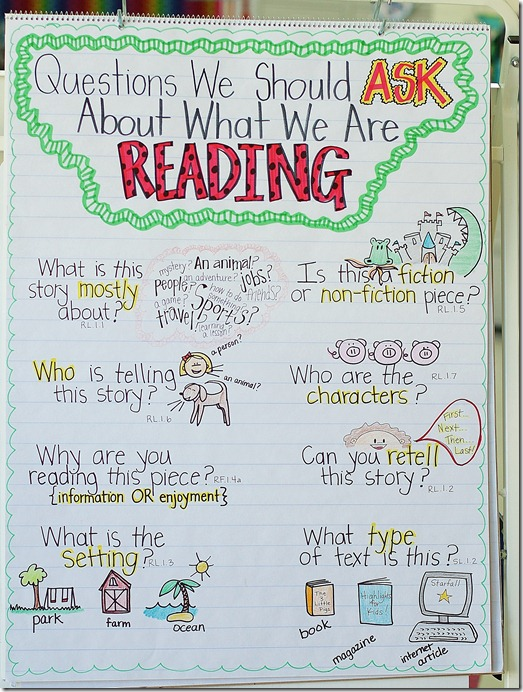 Questions We Should ASK
About What We Are
READING
What is this
story mostly
about?
RL.1.1
mystery?
An animal?
an adventure?
People?
jobs?
how to do
something?
friends?
a game?
Sports?
travel?
learning
a lesson?
Is this a fiction
or non-fiction piece?
RL.1.5
Who is telling
this story?
RL.1.6
a person?
an animal?
Who are the
characters?
RL.1.7
Why are you
reading this piece? RF.1.4a
{information OR enjoyment}
Can you retell
this story?
RL.1.2
First...
Next...
Then...
Last!
What is the
setting? RL.1.3
park
farm
ocean
What type
of text is this? SL.1.2
The
3
Little
Pigs
book
Highlights
for
Kids!
magazine
Starfall
internet
article